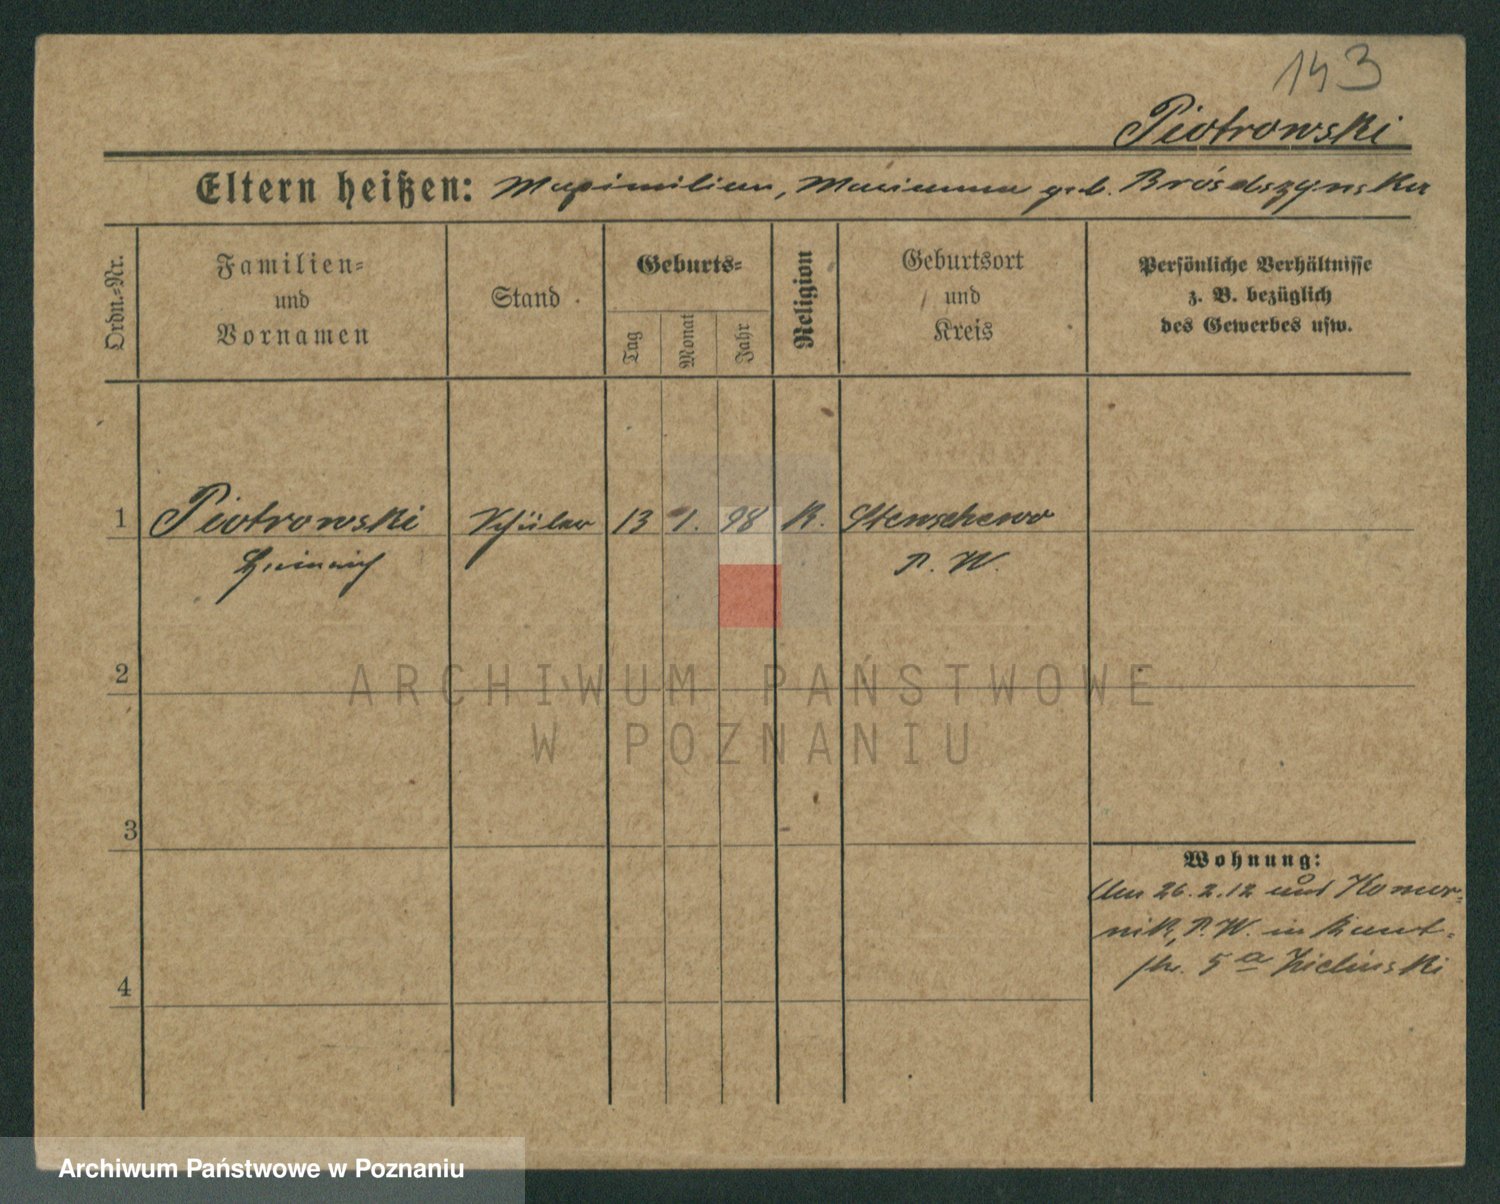 143
Piotrowski
Eltern heißen: Maximilian, Marianna geb. Brósdszynska
Ordn.-Nr.
Familien-
und
Vornamen
Stand
Geburts-
Tag
Monat
Jahr
Religion
Geburtsort
und
Kreis
Persönliche Verhältnisse
z. B. bezüglich
des Gewerbes usw.
1 Piotrowski Schüler 13 1. 98 K. Stenschewo
Heinrich P. W.
2
ARCHIWUM PAŃSTWOWE
W POZNANIU
3
Wohnung:
Am 26. 2. 12 aus Komor-
nik, P. W. in
str. 5a Zielinski
4
Archiwum Państwowe w Poznaniu